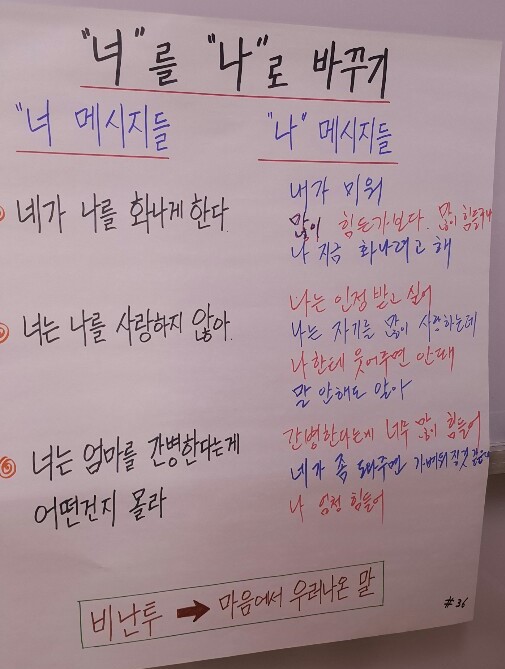 "너"를 "나"로 바꾸기
"너 메시지들
"나" 메시지들
네가 나를 화나게 한다.
내가 미워
많이 힘든가보다. 많이 힘들구나
나 지금 화나려고 해
너는 나를 사랑하지 않아.
나는 인정 받고 싶어
나는 자기를 많이 사랑하는데
나한테 웃어주면 안돼
말 안해도 알아
③ 너는 엄마를 간병한다는게
어떤건지 몰라
간병한다는게 너무 많이 힘들어
네가 좀 도와주면 가벼워 질것 같은데
나 엄청 힘들어
비난투 → 마음에서 우러나온 말
#36